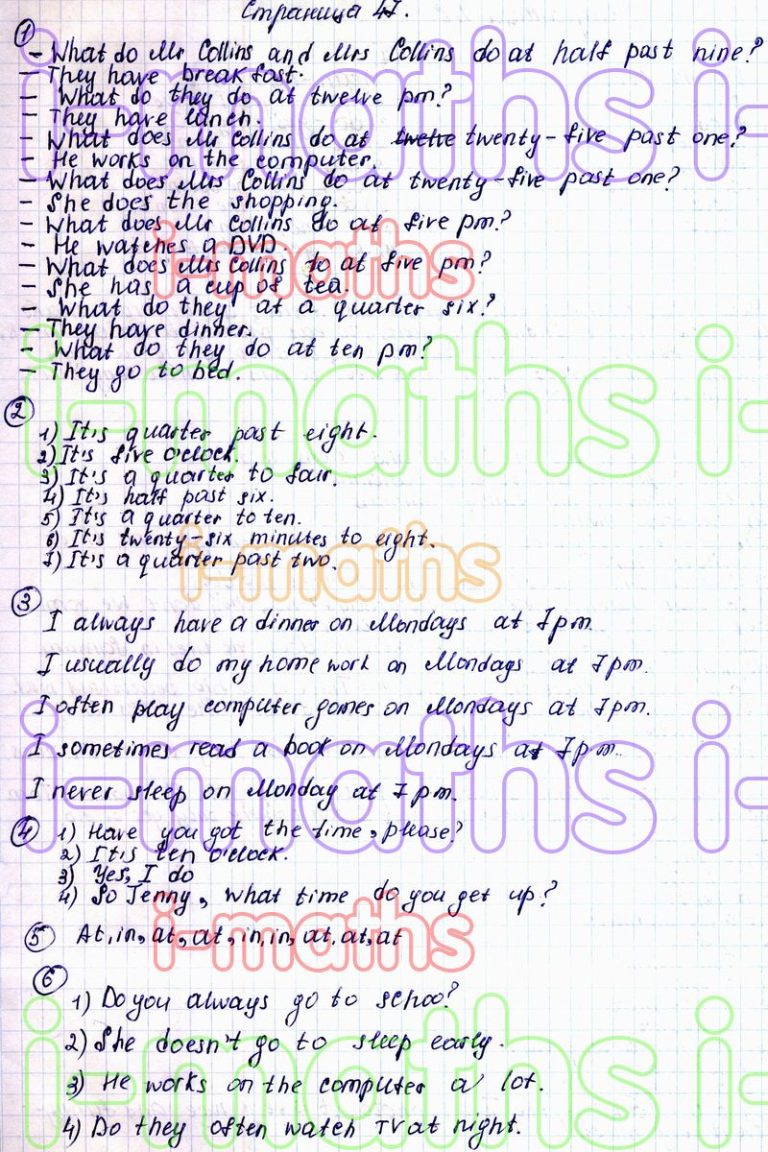 Страница 47.
①
- What do Mr Collins and Mrs Collins do at half past nine?
- They have breakfast.
- What do they do at twelve pm?
- They have lunch.
- What does Mr Collins do at twelve twenty-five past one?
- He works on the computer.
- What does Mrs Collins do at twenty-five past one?
- She does the shopping.
- What does Mr Collins do at five pm?
- He watches a DVD.
- What does Mrs Collins to at five pm?
- She has a cup of tea.
- What do they at a quarter six?
- They have dinner.
- What do they do at ten pm?
- They go to bed.
②
1) It's quarter past eight.
2) It's five o'clock.
3) It's a quarter to four.
4) It's half past six.
5) It's a quarter to ten.
6) It's twenty-six minutes to eight.
7) It's a quarter past two.
③
I always have a dinner on Mondays at 7 pm.
I usually do my home work on Mondays at 7 pm.
I often play computer games on Mondays at 7 pm.
I sometimes read a book on Mondays at 7 pm.
I never sleep on Monday at 7 pm.
④ 1) Have you got the time, please?
2) It's ten o'clock.
3) Yes, I do
4) So Jenny, what time do you get up?
⑤ At, in, at, at, in, in, at, at, at
⑥
1) Do you always go to school?
2) She doesn't go to sleep early.
3) He works on the computer a lot.
4) Do they often watch TV at night.
i-maths i-
i-maths
i-maths i-
i-maths
i-maths i-
i-maths
i-maths i-